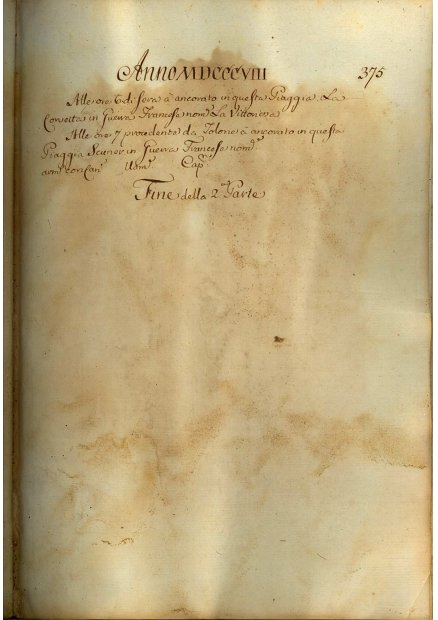 Anno MDCCCVIII 375
Alle ore 6 di sera à ancorato in questa Piaggia La
Corvetta in Guerra Francese nom.
Alle ore 7 provdente da Tolone à ancorato in questa
Piaggia Scuner in Guerra Francese nom.
arm. con Can. Uom. Cap.
Fine della 2.ª Parte